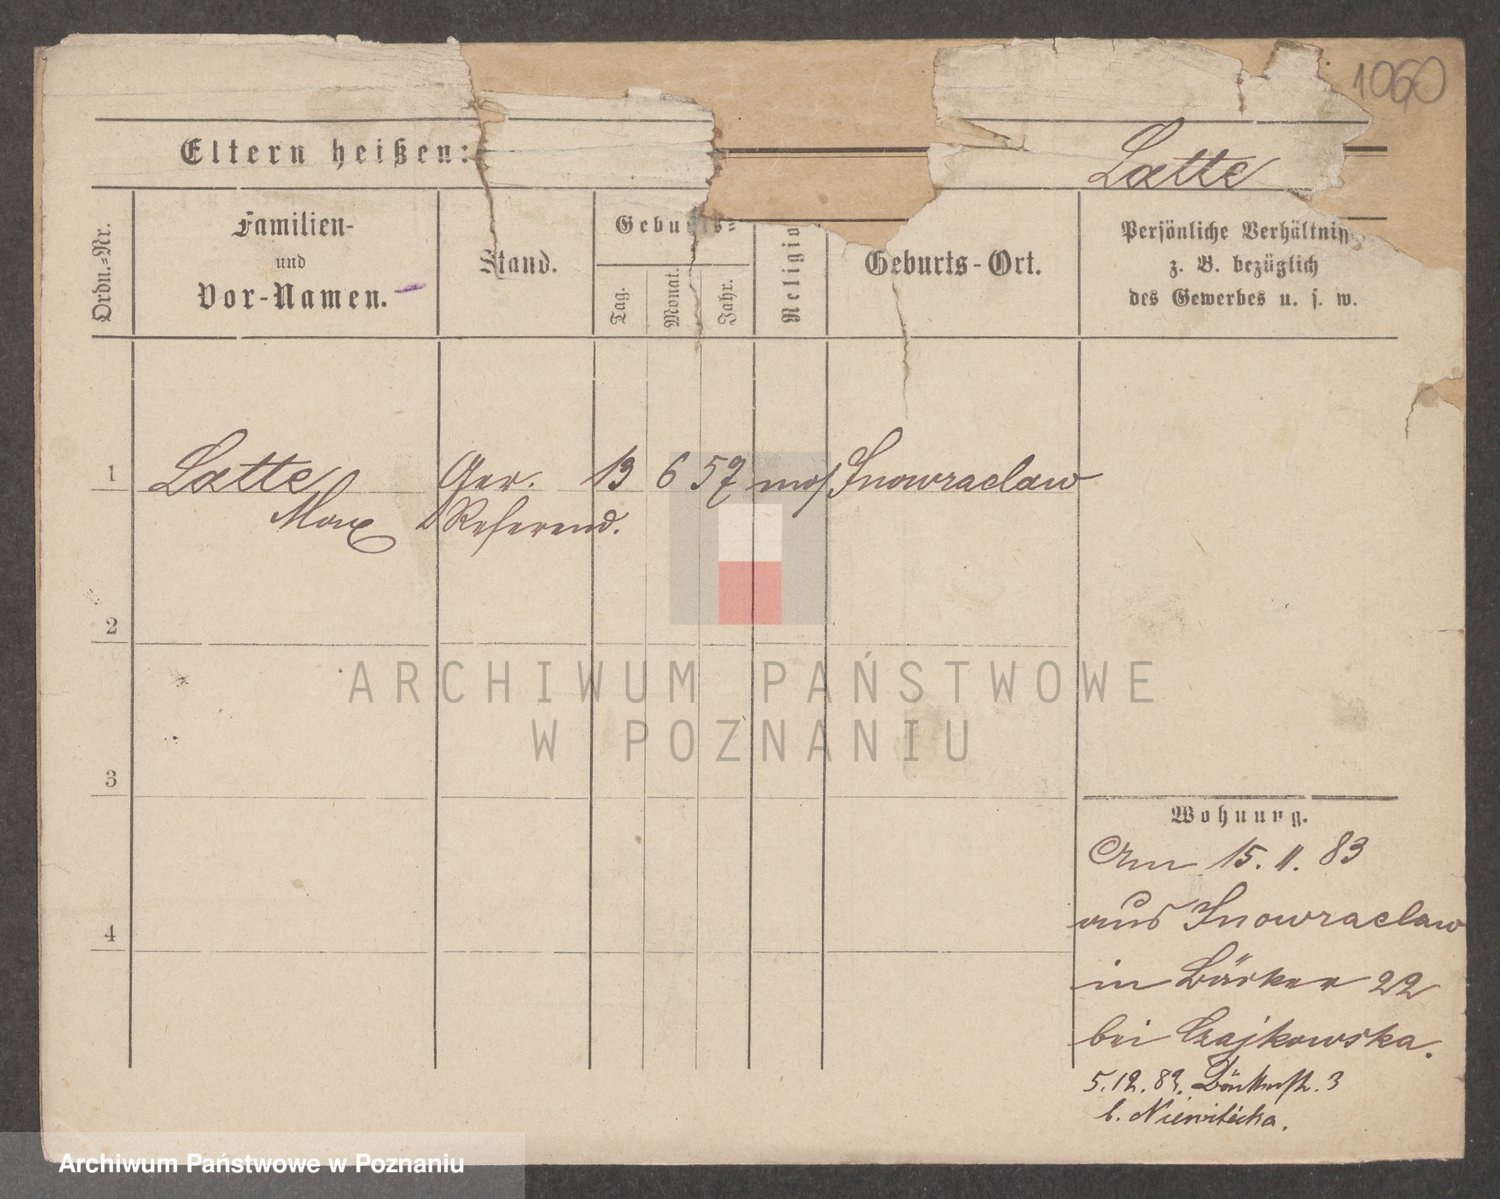 1060
Eltern heißen:
Latte
Ordn.=Nr.
Familien-
und
Vor-Namen.
Stand.
Geburts=
Tag.
Monat.
Jahr.
Religio
Geburts-Ort.
Persönliche Verhältniss
z. B. bezüglich
des Gewerbes u. s. w.
1
Latte Ger. 13 6 57 mos Inowraclaw
Max Referend.
2
3
4
Wohnung.
Am 15. 11. 83
aus Inowraclaw
in Bäcker 22
bei Czajkowska.
5.12.83. Bäckerstr. 3
b.
ARCHIWUM PAŃSTWOWE
W POZNANIU
Archiwum Państwowe w Poznaniu